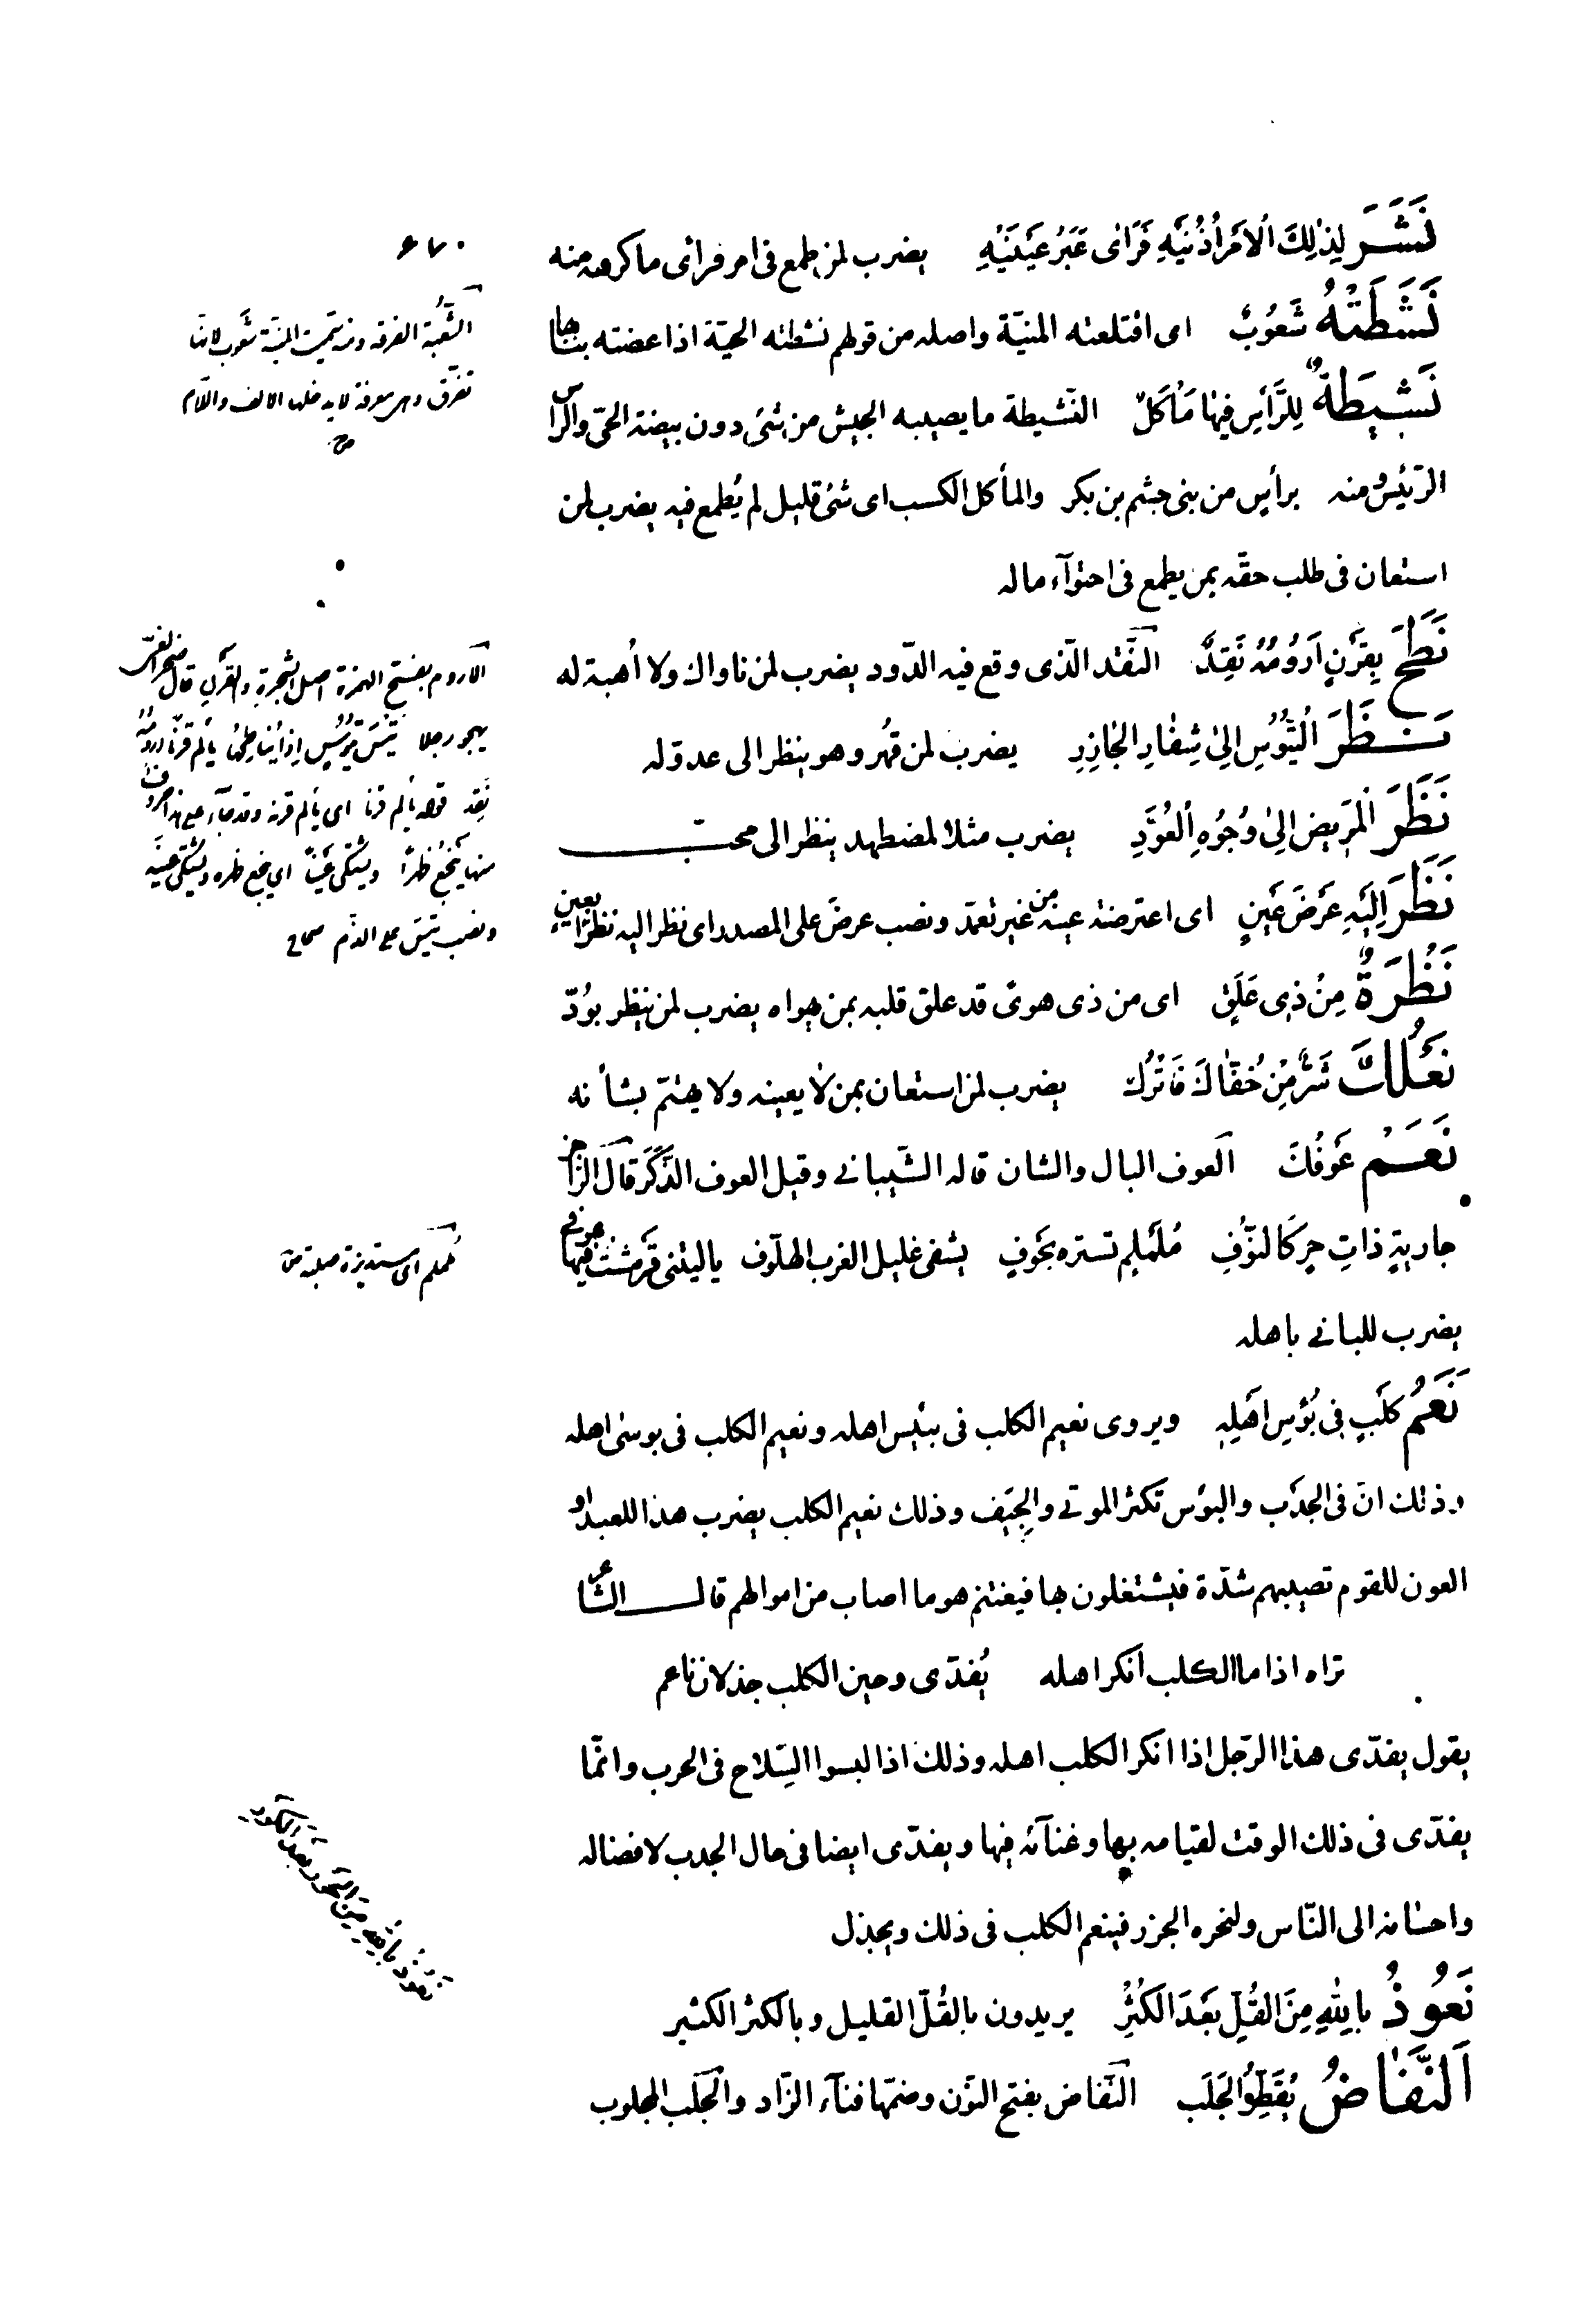 ٠٧٤
نَشَرَ لِذٰلِكَ الْاَمْرِ اُذُنَيْهِ فَرَاٰى عَبْرَ عَيْنَيْهِ يضرب لمن طمع فى امر فراى ما كره منه
نَشَطَتْهُ شَعُوبٌ اى اقتلعته المنيّة واصله من قولهم نشطته الحيّة اذا عضته بنابها
نَشِيطَةٌ لِلرَّأْسِ فِيهَا مَأْكَلٌ النّشيطة ما يصيبه الجيش من شئ دون بيضة الحىّ والرأس
الرّئيس ومنه برأسٍ من بنى جشم بن بكر والمأكل الكسب اى شئ قليل لم يُطمع فيه يضرب لمن
استعان فى طلب حقّه بمن يطمع فى احتوآء ماله
نَطَحَ بِقَرْنٍ اَرُومُهُ نَقِدٌ النّقد الّذى وقع فيه الدّود يضرب لمن ناواك ولا أهبة له
نَظَرَ التُّيُوسِ اِلىٰ شِفَارِ الجَازِرِ يضرب لمن قُهر وهو ينظر الى عدوّه
نَظَرَ الْمَرِيضِ اِلىٰ وُجُوهِ الْعُوَّدِ يضرب مثلا لمضطهد ينظر الى محبّ
نَظَرَ اِلَيْهِ عَرْضَ عَيْنٍ اى اعترضته عينه من غير تعمّد ونصب عرضَ على المصدر اى نظر اليه نظرًا بعينٍ
نَظْرَةٌ مِنْ ذِى عَلَقٍ اى من ذى هوىً قد علق قلبه بمن يهواه يضرب لمن ينظر بوُدّ
نَعْلُكَ شَرٌّ مِنْ خُفِّكَ فَاتْرُكْ يضرب لمن استعان بمن لا يعينه ولا يهتمّ بشأنه
نَعِمَ عَوْفُكَ العوف البال والشان قاله الشّيبانى وقيل العوف الذّكر قال الرّاجز
جاريةٍ ذاتِ حِرٍ كَالنَّوْفِ مُلَمْلَمٍ تستره بحَوفٍ يشفى غليل العزب الهلّوف ياليتنى قرمشت فيها عوفى
يضرب للبانى باهله
نَعِمَ كَلْبٌ فِى بُؤْسِ اَهْلِهِ ويروى نعيم الكلب فى بئيس اهله ونعيم الكلب فى بوسى اهله
وذلك انّ فى الجدب والبؤس تكثر الموتى والجِيَف وذلك نعيم الكلب يضرب هذا للعبد او
العون للقوم تصيبهم شدّة فيشتغلون بها فيغتنم هو ما اصاب من اموالهم قال الشّاعر
تراه اذا ما الكلب انكر اهله يُفدّى وحين الكلب جذلان ناعم
يقول يفدّى هذا الرّجل اذا انكر الكلب اهله وذلك اذا لبسوا السّلاح فى الحرب وانّما
يفدّى فى ذلك الوقت لقيامه بها وغنآئه فيها ويفدّى ايضا فى حال الجدب لافضاله
واحسانه الى النّاس ولنحره الجزر فينعم الكلب فى ذلك ويجذل
نَعُوذُ بِاللهِ مِنَ القُلِّ بَعْدَ الكُثْرِ يريدون بالقُلّ القليل وبالكثر الكثير
اَلنُّفَاضُ يُقَطِّرُ الجَلَبَ النّفاض بفتح النّون وضمّها فنآء الزّاد والجَلَب المجلوب
الشّعبة الفرقة ومنه سمّيت المنيّة شعوب لانّها
تفرّق وهى معرفة لا يدخلها الالف واللّام
صح
الاروم بفتح الهمزة اصل الشّجرة والقرن قال صخر الغىّ
يهجو رجلا تَيْسَ تُيُوسٍ اِذا يُنَاطِحُهَا يألم قرنًا ارومُهُ
نَقِد قوله يألم قرنا اى يألم قرنه وقد جآء على هذا حروف
منها يَيْجَعُ ظهرًا ويشتكى عينًا اى يجع ظهره ويشتكى عينه
ونصب تيس على الذّم صحاح
مُلملم اى مستديرة صلبة
نعوذ بالله من الحَوْر بعد الكَوْر